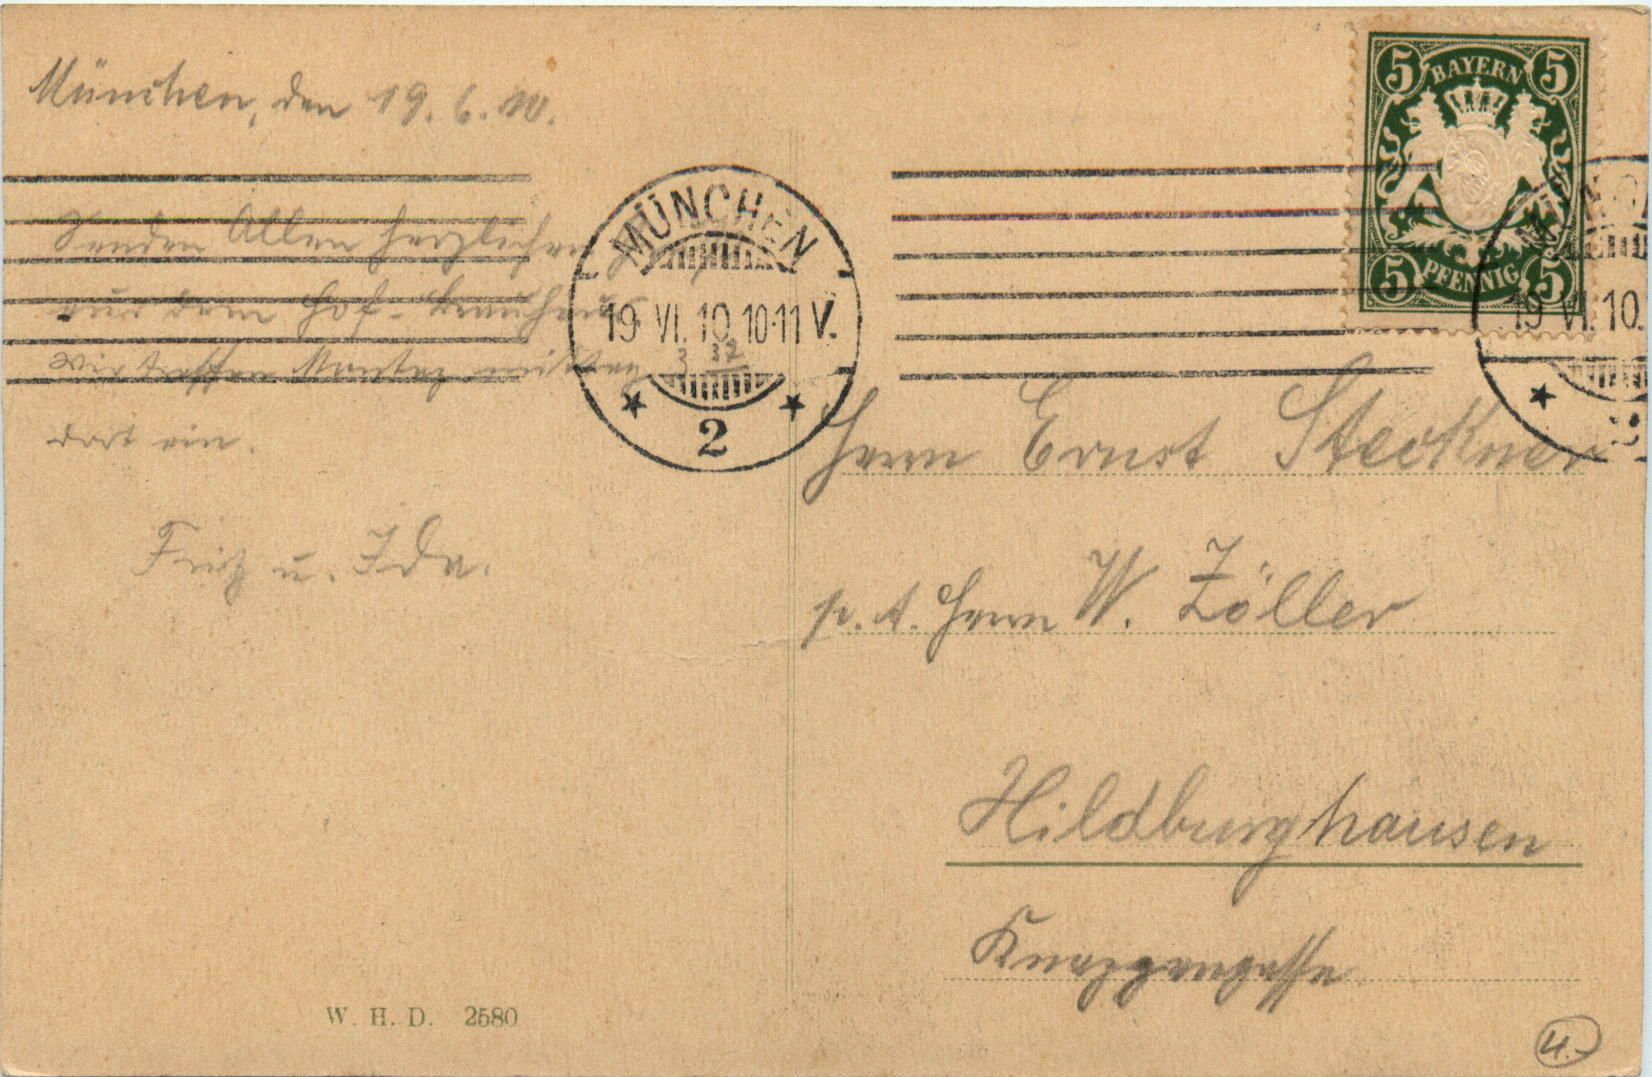 München, den 19.6.10.
Senden Allen herzlichen
aus dem Hof-Brauhaus
wir treffen Montag mittag 3 32
dort ein.
Fritz u. Ida.
MÜNCHEN
19 VI. 10. 10-11 V.
2
BAYERN
5 5
5 5
PFENNIG
19 VI. 10.
Herrn Ernst Steckner
p. A. Herrn W. Zöller
Hildburghausen
Knappengasse
W. H. D. 2580
4.-